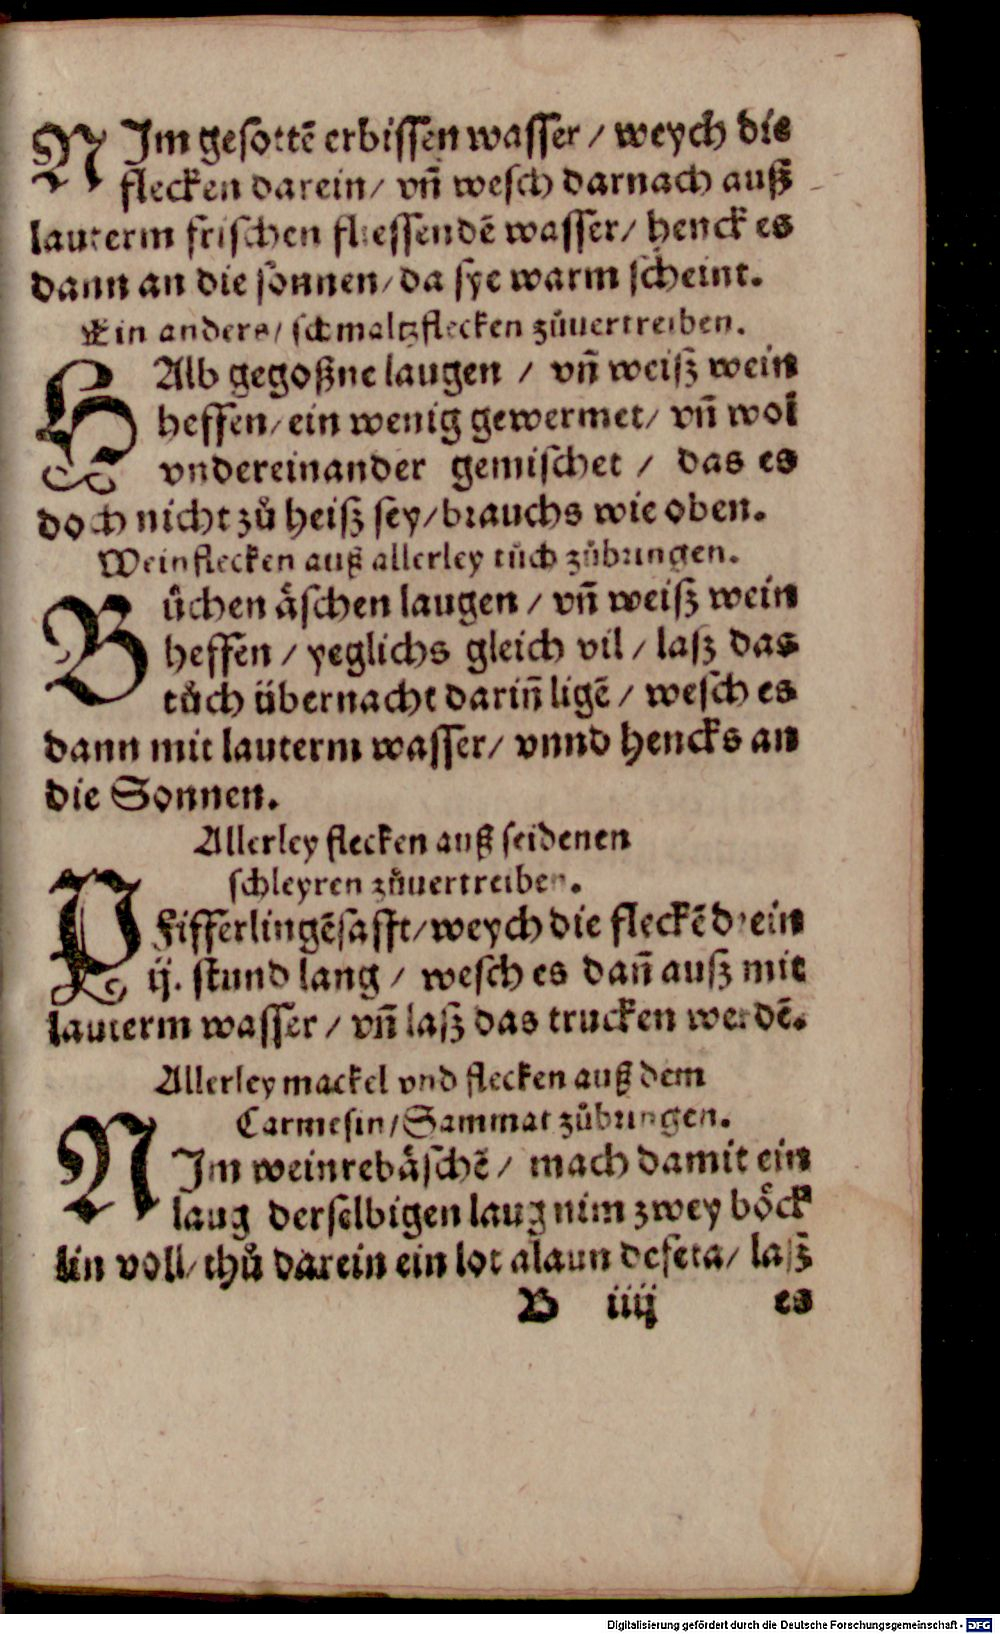 NIm gesottē erbissen wasser / weych die
flecken darein / vñ wesch darnach auß
lauterm frischen fliessendē wasser / henck es
dann an die sonnen / da sye warm scheint.
Ein anders / schmaltzflecken zůuertreiben.
HAlb gegoßne laugen / vñ weiß wein
heffen / ein wenig gewermet / vñ wol
vndereinander gemischet / das es
doch nicht zů heiß sey / brauchs wie oben.
Weinflecken auß allerley tůch zůbringen.
Bůchen äschen laugen / vñ weiß wein
heffen / yeglichs gleich vil / laß das
tůch übernacht dariñ ligē / wesch es
dann mit lauterm wasser / vnnd hencks an
die Sonnen.
Allerley flecken auß seidenen
schleyren zůuertreiben.
Pfifferlingēsafft / weych die fleckē drein
ij. stund lang / wesch es dañ auß mit
lauterm wasser / vñ laß das trucken werdē.
Allerley mackel vnd flecken auß dem
Carmesin / Sammat zůbringen.
NIm weinrebäschē / mach damit ein
laug derselbigen laug nim zwey böck
lin voll / thů darein ein lot alaun defeta / laß
B iiij es
Digitalisierung gefördert durch die Deutsche Forschungsgemeinschaft - DFG